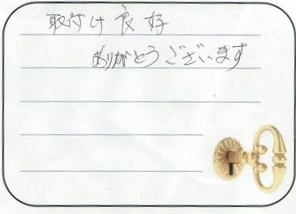 取付け良好
ありがとうございます